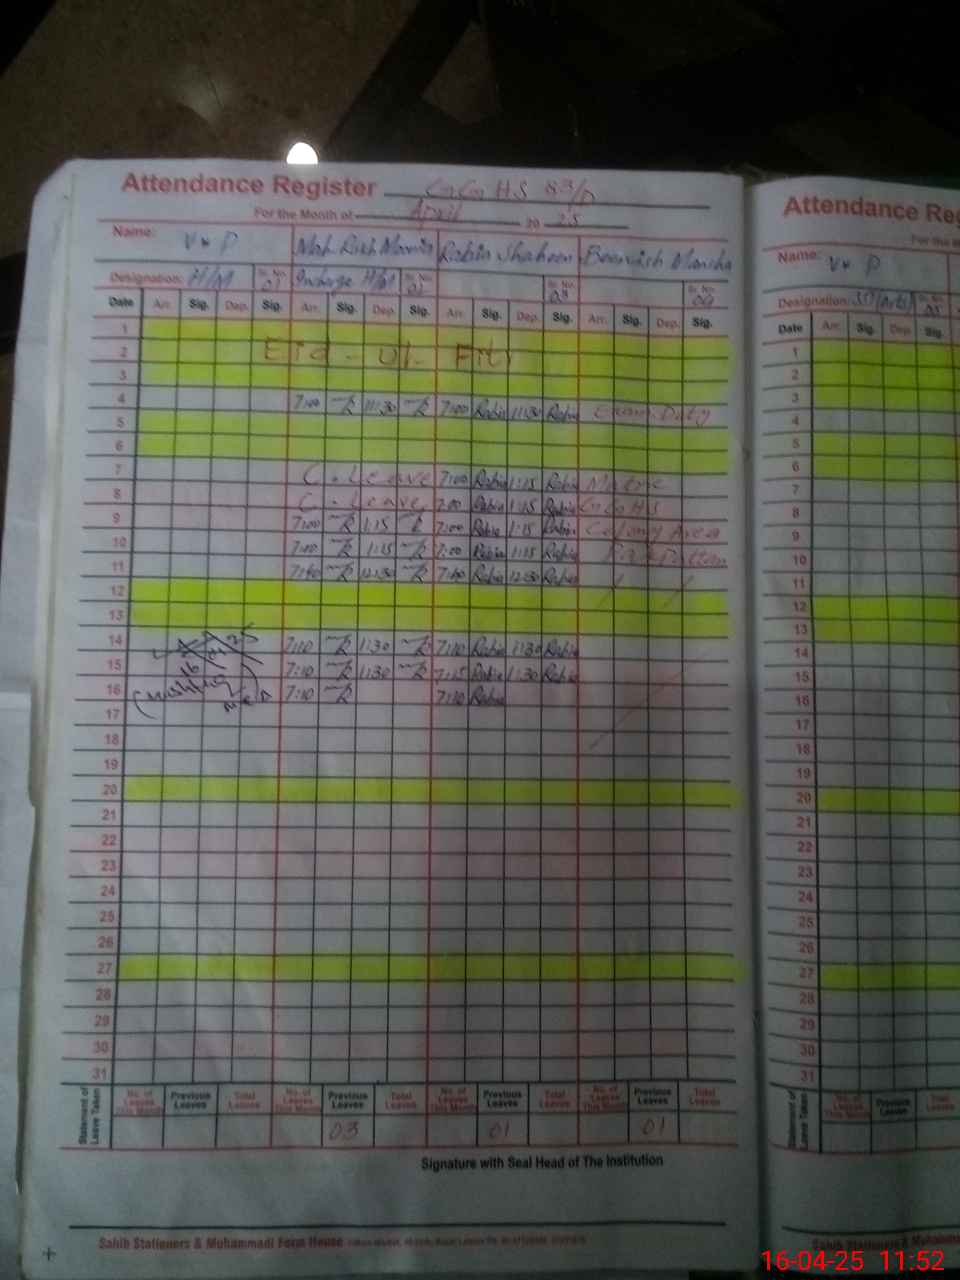 Attendance Register GGHS 83/P
For the Month of April 20 25
Name: V * P Rabia Shaheen
Designation: H/M Sr. No. 01 Incharge H/M Sr. No. 02 Sr. No. 03 Sr. No. 04
Date Arr. Sig. Dep. Sig. Arr. Sig. Dep. Sig. Arr. Sig. Dep. Sig. Arr. Sig. Dep. Sig.
1
2 Eid - ul - Fitr
3
4 7:00 11:30 7:00 Rabia 11:30 Rabia Exam Duty
5
6
7 C. Leave 7:00 Rabia 1:15 Rabia
8 C. Leave 7:00 Rabia 1:15 Rabia
9 7:00 1:15 7:00 Rabia 1:15 Rabia Colony Area
10 7:00 1:15 7:00 Rabia 1:15 Rabia Pak Pattan
11 12:30 Rabia 12:30 Rabia
12
13
14 7:10 1:30 7:10 Rabia 1:30 Rabia
15 7:10 1:30 7:15 Rabia 1:30 Rabia
16 7:10 7:10 Rabia
17
18
19
20
21
22
23
24
25
26
27
28
29
30
31
Statement of Leave Taken
No. of Leaves This Month Previous Leaves Total Leaves No. of Leaves This Month Previous Leaves Total Leaves No. of Leaves This Month Previous Leaves Total Leaves No. of Leaves This Month Previous Leaves Total Leaves
03 01 01
Signature with Seal Head of The Institution
Sahib Stationers & Muhammadi Form House
Attendance Reg
For the M
Name: V * P
Designation: Sr. No. 05
Date Arr. Sig. Dep. Sig.
1
2
3
4
5
6
7
8
9
10
11
12
13
14
15
16
17
18
19
20
21
22
23
24
25
26
27
28
29
30
31
Statement of Leave Taken
No. of Leaves This Month Previous Leaves Total Leaves
Sahib Stationers & Muhamma
16-04-25 11:52